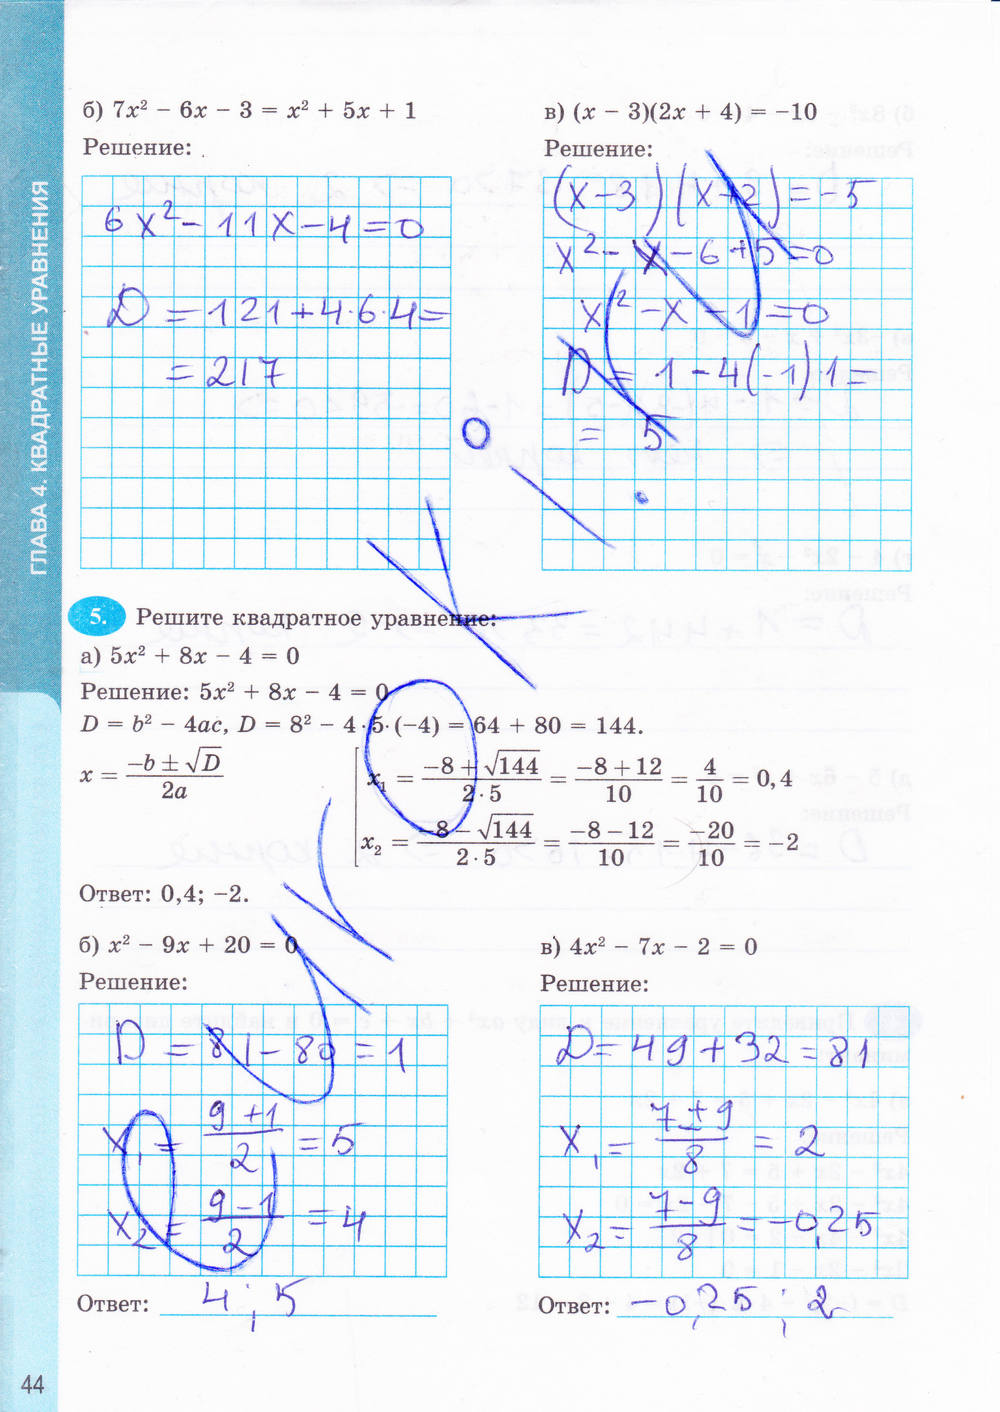 ГЛАВА 4. КВАДРАТНЫЕ УРАВНЕНИЯ
б) 7x² − 6x − 3 = x² + 5x + 1
Решение:
6x² − 11x − 4 = 0
D = 121 + 4·6·4 =
= 217
в) (x − 3)(2x + 4) = −10
Решение:
(x − 3)(x + 2) = −5
x² − x − 6 + 5 = 0
x² − x − 1 = 0
D = 1 − 4(−1)1 =
= 5
5. Решите квадратное уравнение:
а) 5x² + 8x − 4 = 0
Решение: 5x² + 8x − 4 = 0
D = b² − 4ac, D = 8² − 4·5·(−4) = 64 + 80 = 144.
x = (−b ± √D)/(2a)
x₁ = (−8 + √144)/(2·5) = (−8 + 12)/10 = 4/10 = 0,4
x₂ = (−8 − √144)/(2·5) = (−8 − 12)/10 = −20/10 = −2
Ответ: 0,4; −2.
б) x² − 9x + 20 = 0
Решение:
D = 81 − 80 = 1
x₁ = (9 + 1)/2 = 5
x₂ = (9 − 1)/2 = 4
Ответ: 4; 5
в) 4x² − 7x − 2 = 0
Решение:
D = 49 + 32 = 81
x₁ = (7 + 9)/8 = 2
x₂ = (7 − 9)/8 = −0,25
Ответ: −0,25; 2
44